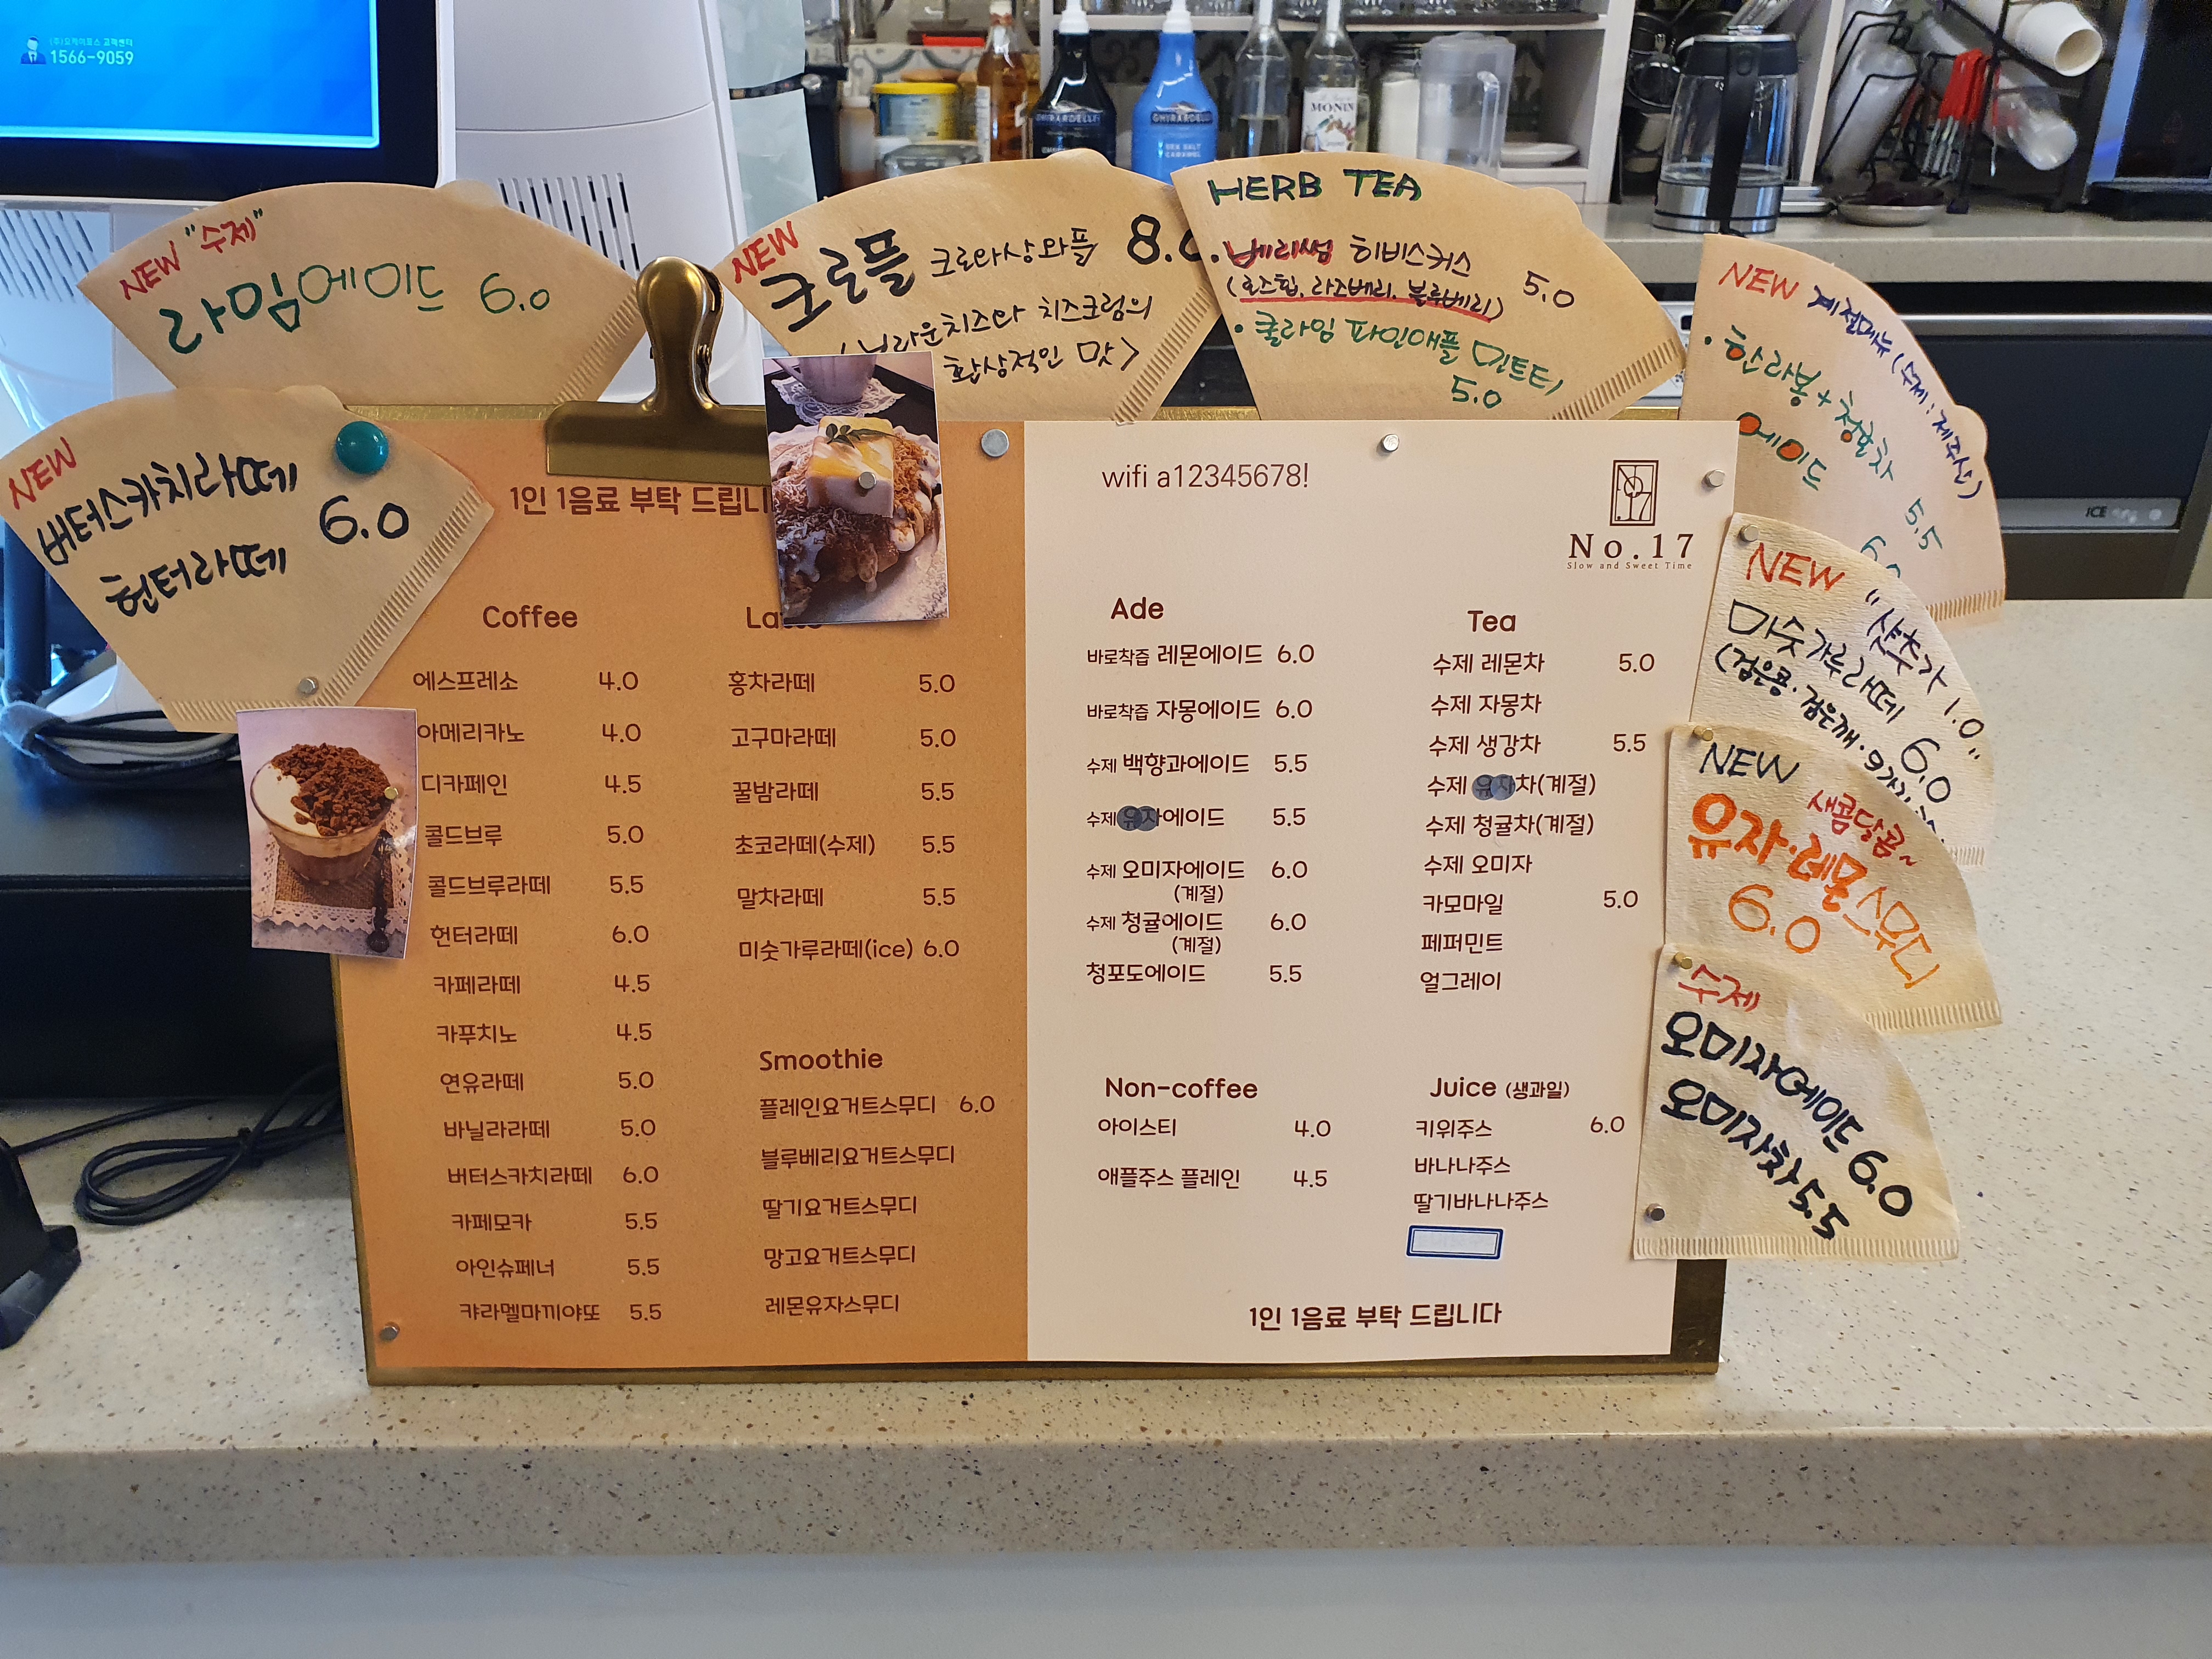 (주)오케이포스 고객센터
1566-9059
GHIRARDELLI
GHIRARDELLI
SEA SALT
CARAMEL
MONIN
ICE
NEW "수제"
라임에이드 6.0
NEW
크로플 크로와상와플 8.0
(브라운치즈와 치즈크럼의
환상적인 맛>
HERB TEA
·베리썸 히비스커스 5.0
(로즈힙, 라즈베리, 블루베리)
·쿨라임 파인애플 민트티
5.0
NEW 계절메뉴 (수제 : 제주산)
·한라봉+청귤차 5.5
에이드 6.0
NEW
버터스카치라떼
헌터라떼 6.0
NEW "샷추가 1.0"
미숫가루라떼 6.0
(검은콩·검은깨·9가지
NEW
새콤달콤~
유자·레몬스무디
6.0
수제
오미자에이드 6.0
오미자차 5.5
1인 1음료 부탁 드립니
Coffee
에스프레소 4.0
아메리카노 4.0
디카페인 4.5
콜드브루 5.0
콜드브루라떼 5.5
헌터라떼 6.0
카페라떼 4.5
카푸치노 4.5
연유라떼 5.0
바닐라라떼 5.0
버터스카치라떼 6.0
카페모카 5.5
아인슈페너 5.5
캬라멜마끼야또 5.5
Latte
홍차라떼 5.0
고구마라떼 5.0
꿀밤라떼 5.5
초코라떼(수제) 5.5
말차라떼 5.5
미숫가루라떼(ice) 6.0
Smoothie
플레인요거트스무디 6.0
블루베리요거트스무디
딸기요거트스무디
망고요거트스무디
레몬유자스무디
wifi a12345678!
17
No.17
Slow and Sweet Time
Ade
바로착즙 레몬에이드 6.0
바로착즙 자몽에이드 6.0
수제 백향과에이드 5.5
수제 유자에이드 5.5
수제 오미자에이드 6.0
(계절)
수제 청귤에이드 6.0
(계절)
청포도에이드 5.5
Tea
수제 레몬차 5.0
수제 자몽차
수제 생강차 5.5
수제 유자차(계절)
수제 청귤차(계절)
수제 오미자
카모마일 5.0
페퍼민트
얼그레이
Non-coffee
아이스티 4.0
애플주스 플레인 4.5
Juice (생과일)
키위주스 6.0
바나나주스
딸기바나나주스
1인 1음료 부탁 드립니다